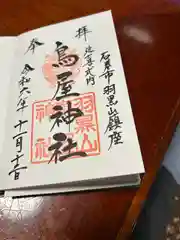 石巻市 羽黒山鎮座
延喜式内
奉拝
鳥屋神社
羽黒山
令和六年十一月